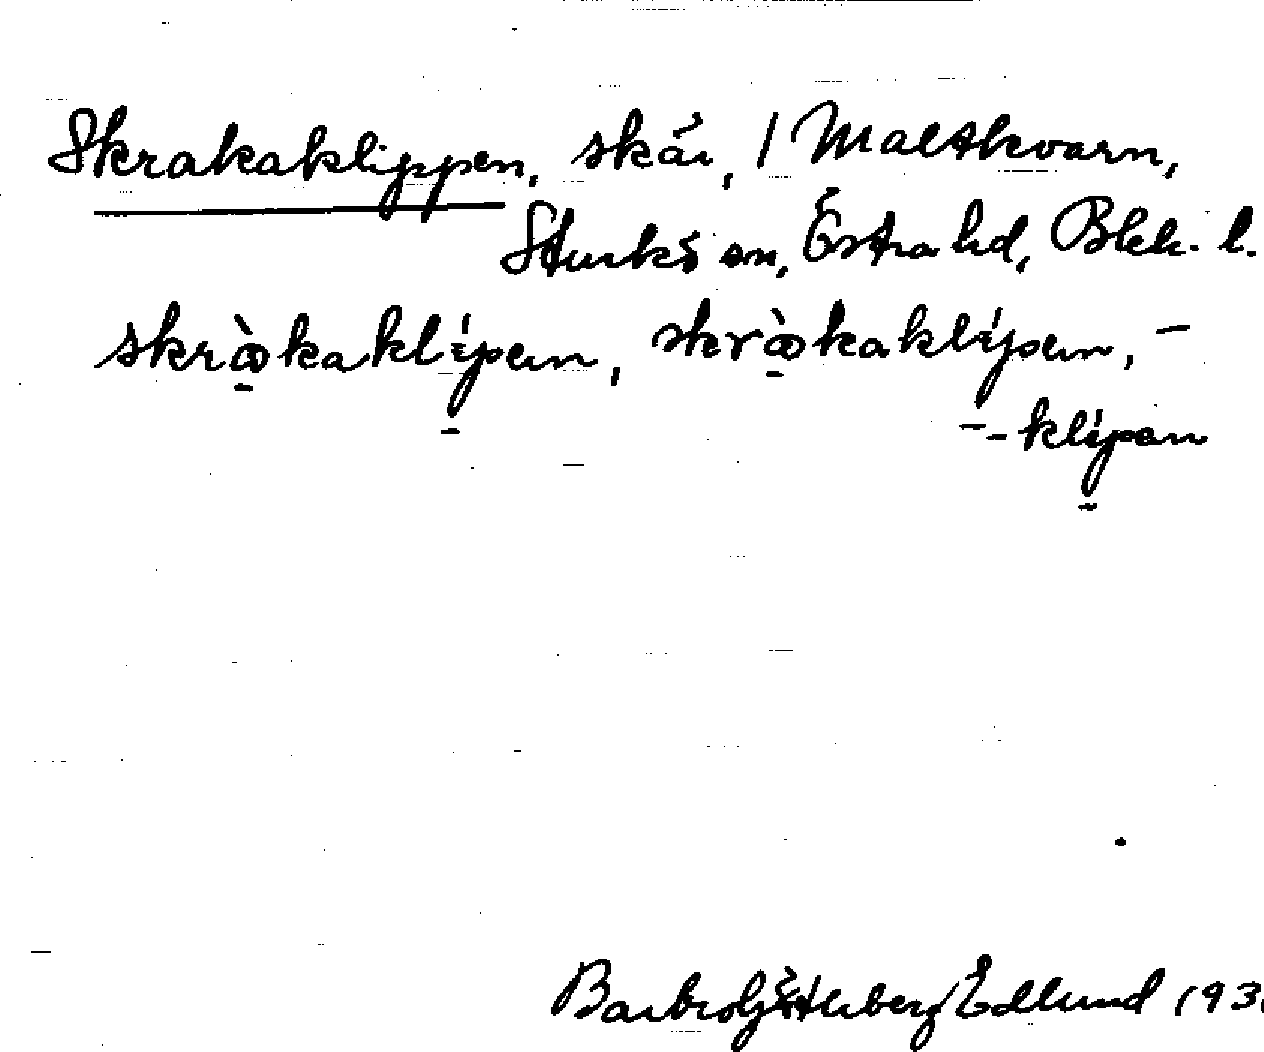 Skrakaklippen, skär, / Maltkvarn,
Sturkö sn, Östra hd, Blek. l.
skràkaklípen, skràkaklípen, –
–-klípan
Barbro Söderberg Edlund 193